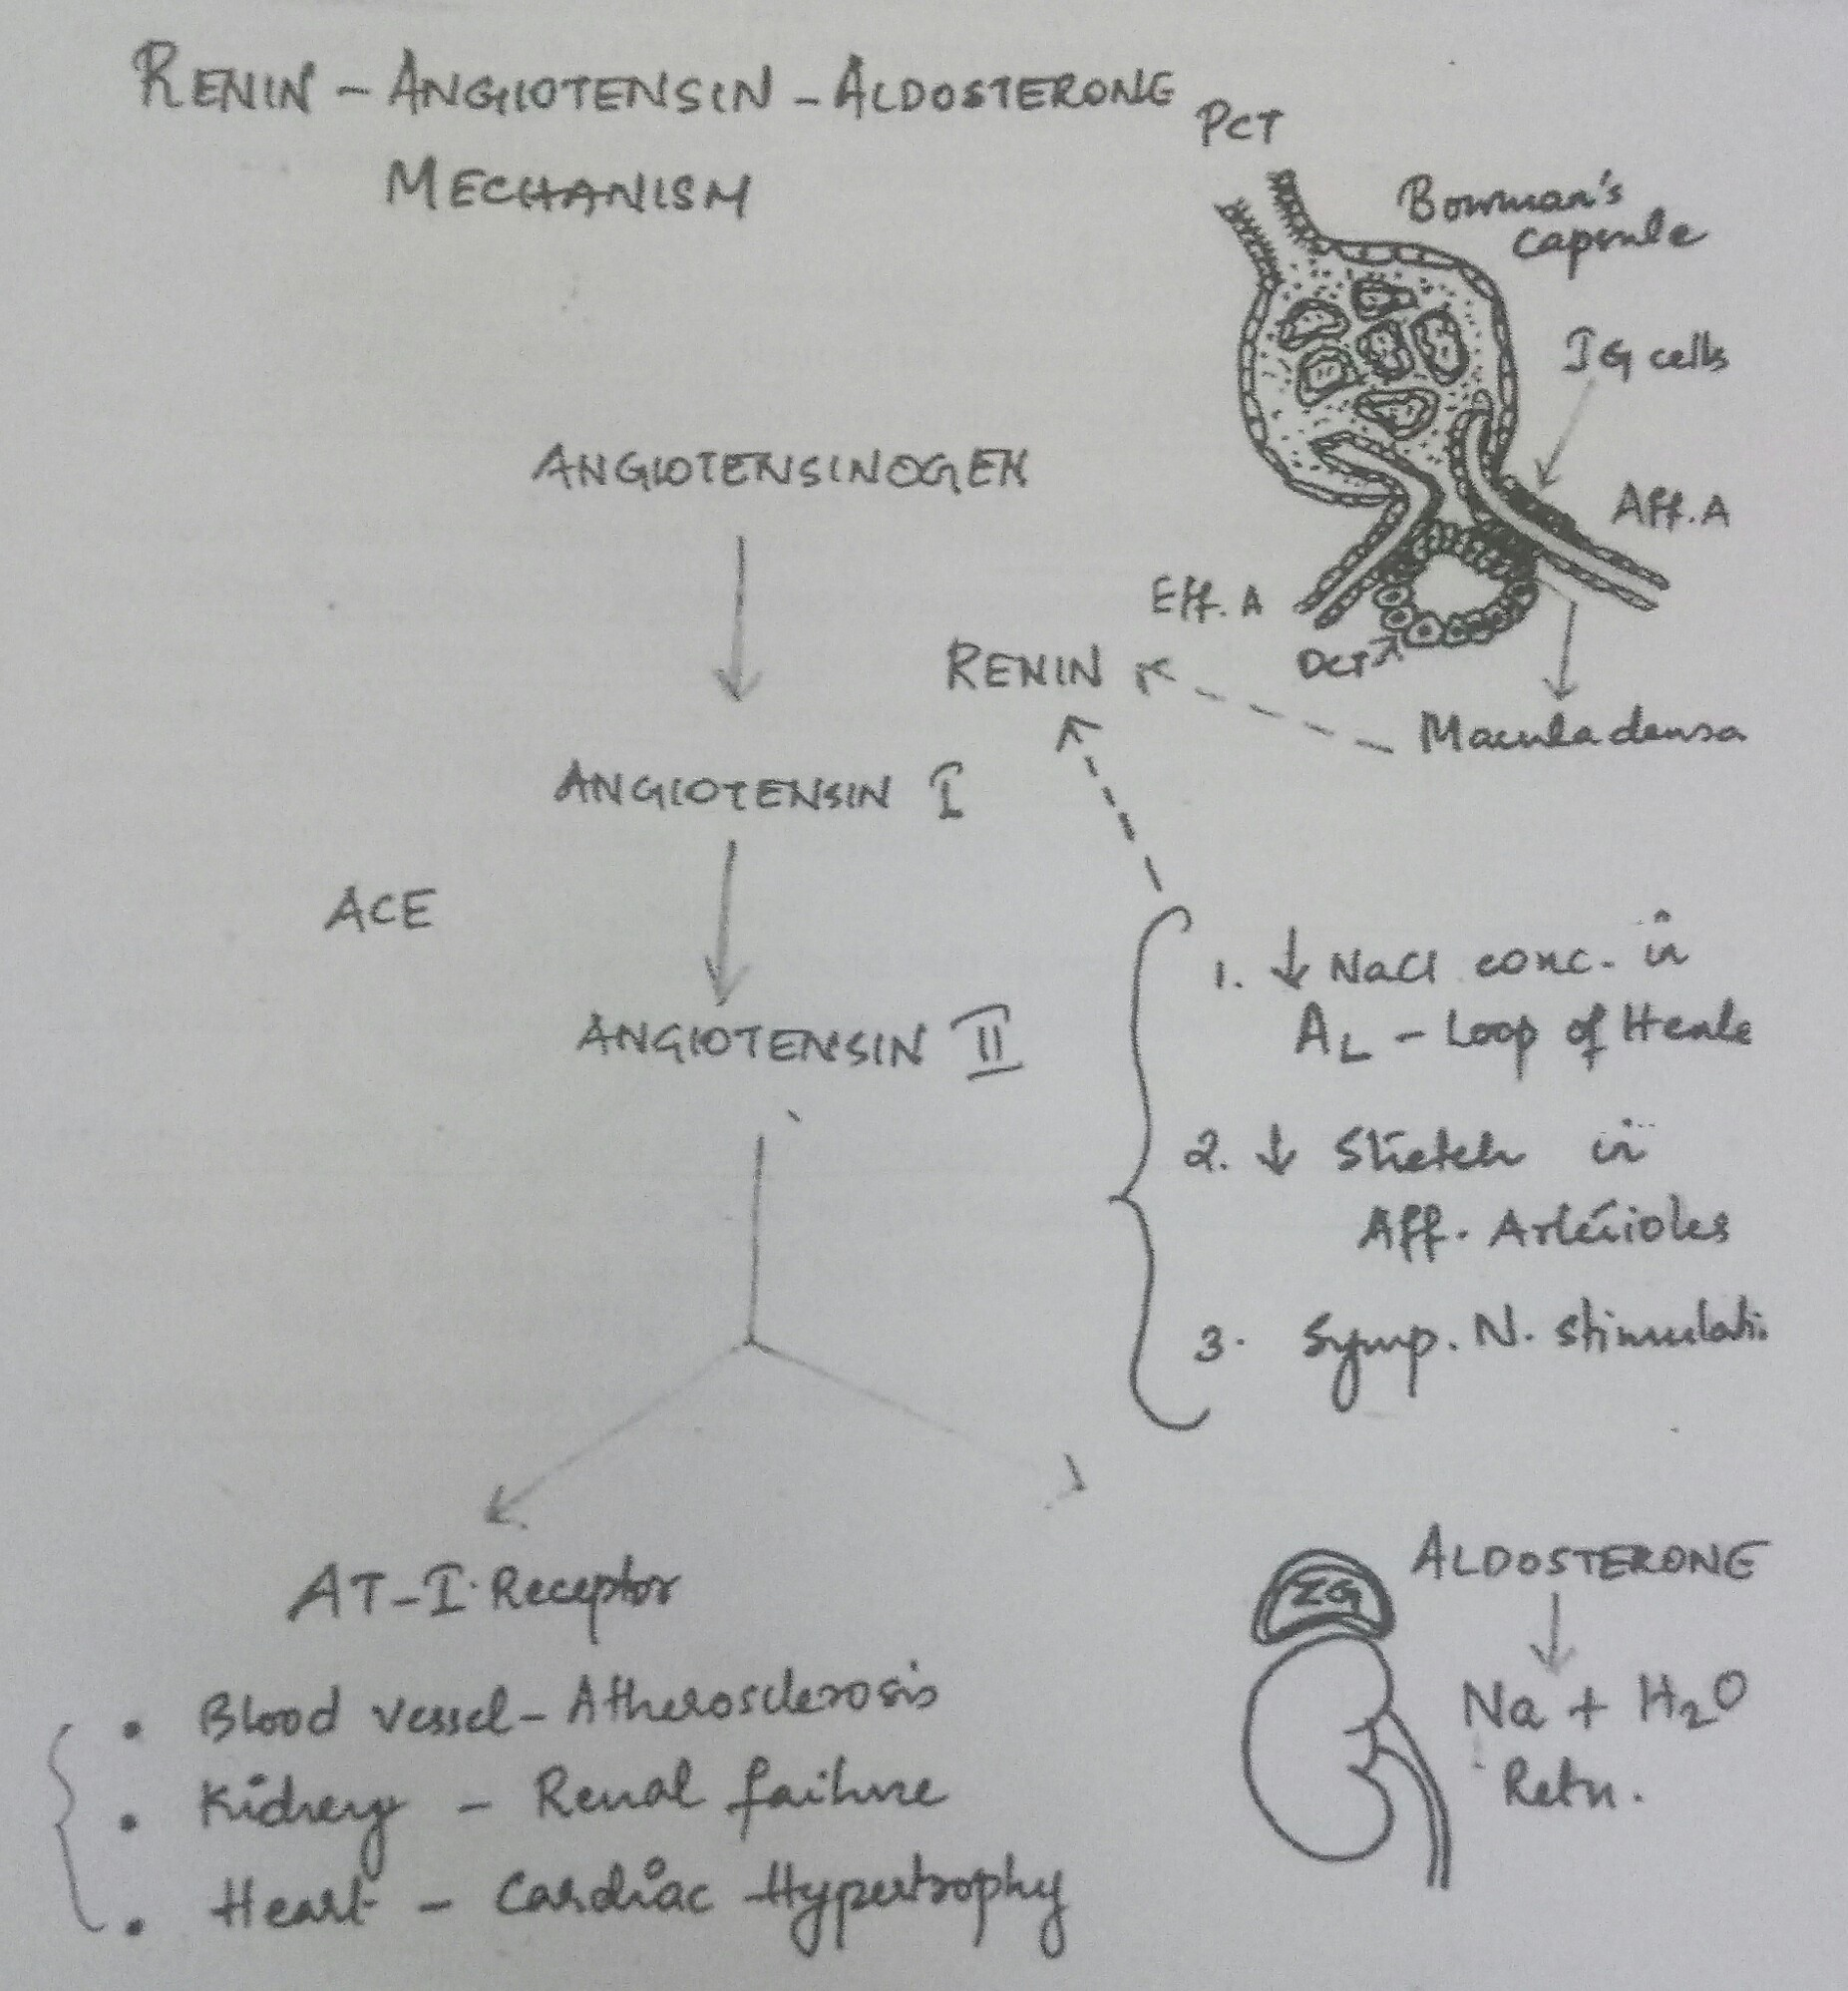 RENIN - ANGIOTENSIN - ALDOSTERONE
MECHANISM
PCT
Bowman's
capsule
JG cells
Aff. A
Eff. A
DCT
Macula densa
ANGIOTENSINOGEN
RENIN
ANGIOTENSIN I
ACE
ANGIOTENSIN II
1. ↓ NaCl conc. in
AL - Loop of Henle
2. ↓ Stretch in
Aff. Arterioles
3. Symp. N. stimulati.
AT-I Receptor
• Blood vessel - Atherosclerosis
• Kidney - Renal failure
• Heart - Cardiac Hypertrophy
ZG
ALDOSTERONE
Na + H2O
Retn.